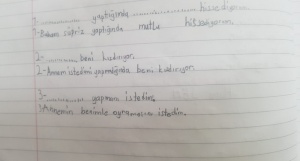 1. ............ yaptığında ............ hissediyorum.
1- Babam sigara yaptığında mutlu hissediyorum.
2- ............ beni kızdırıyor.
2- Annem istediğimi yapmadığında beni kızdırıyor.
3- ............ yapmanı istedim.
3 Annemin benimle oynamasını istedim.